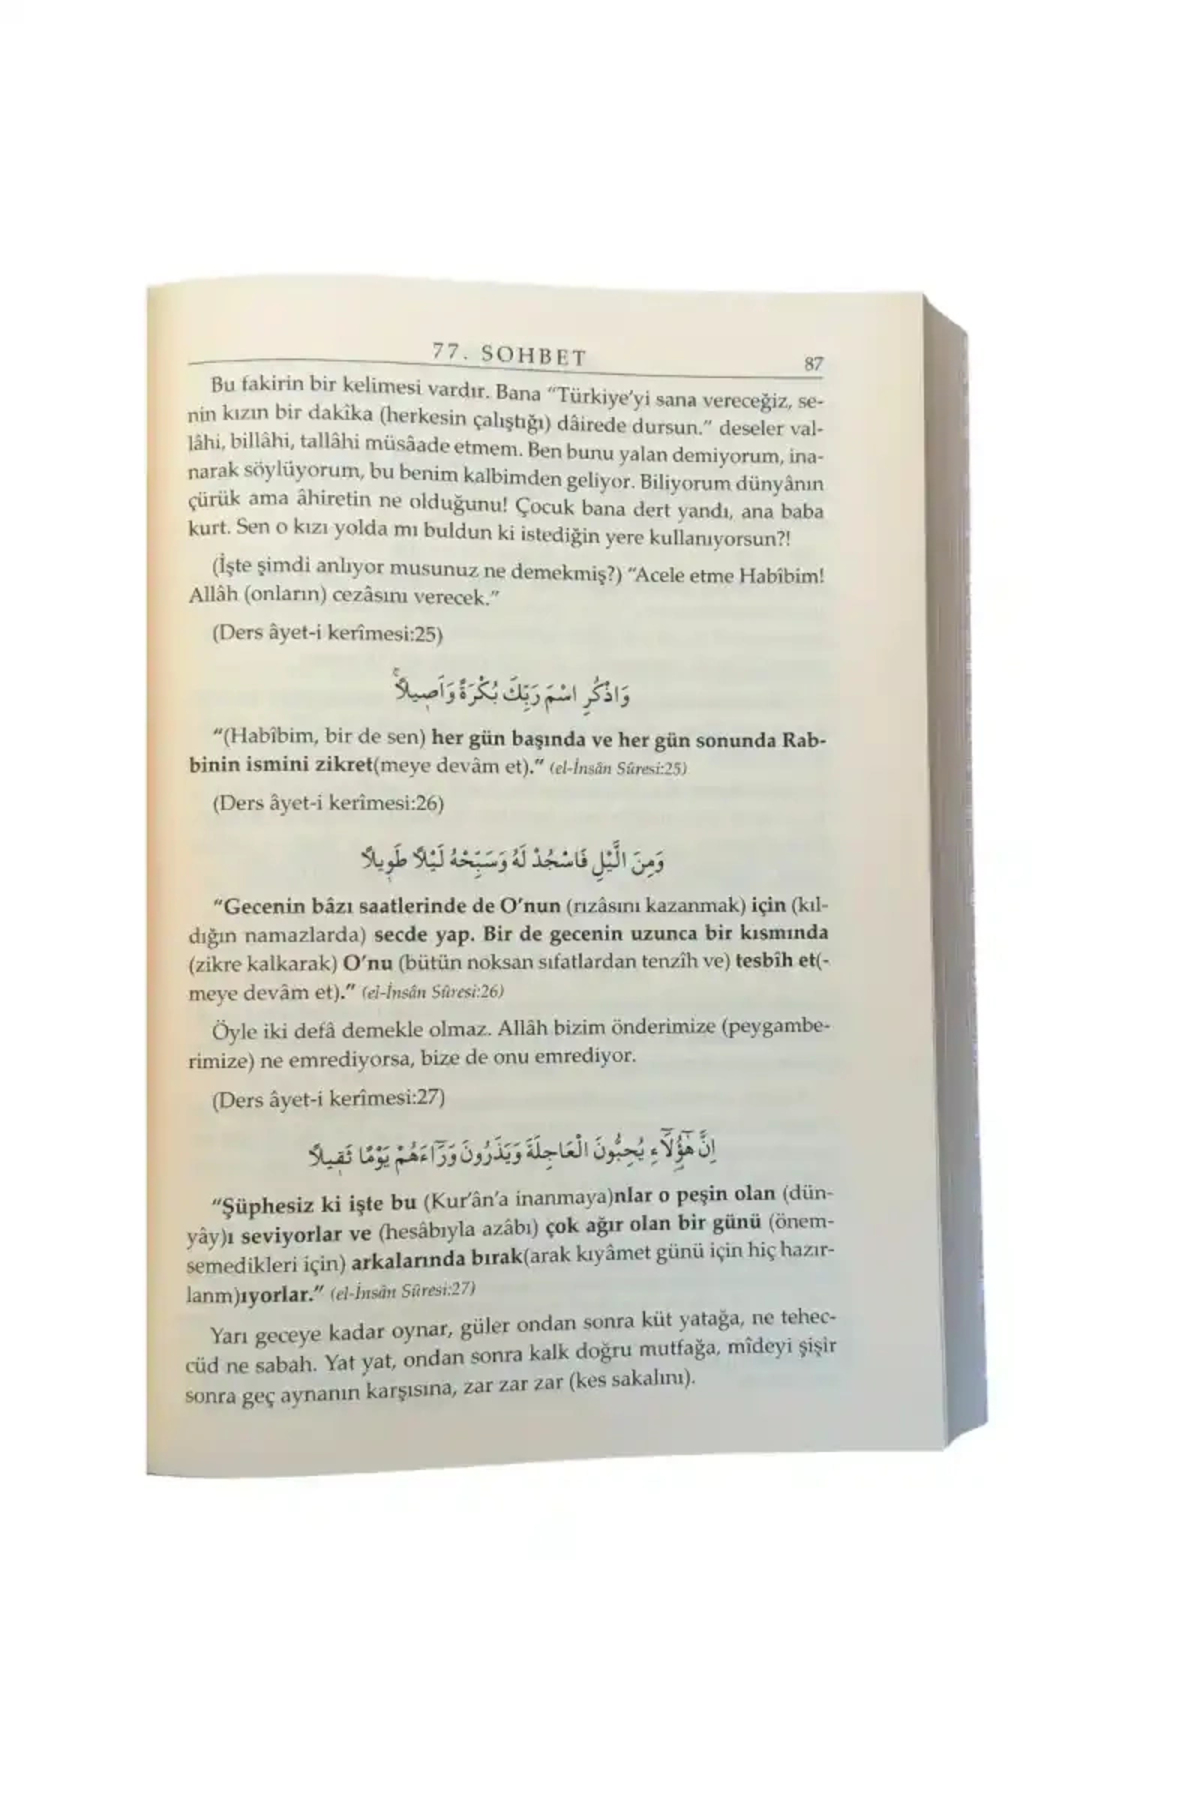 77. SOHBET 87
Bu fakirin bir kelimesi vardır. Bana “Türkiye'yi sana vereceğiz, se-
nin kızın bir dakîka (herkesin çalıştığı) dâirede dursun.” deseler val-
lâhi, billâhi, tallâhi müsâade etmem. Ben bunu yalan demiyorum, ina-
narak söylüyorum, bu benim kalbimden geliyor. Biliyorum dünyânın
çürük ama âhiretin ne olduğunu! Çocuk bana dert yandı, ana baba
kurt. Sen o kızı yolda mı buldun ki istediğin yere kullanıyorsun?!
(İşte şimdi anlıyor musunuz ne demekmiş?) “Acele etme Habîbim!
Allâh (onların) cezâsını verecek.”
(Ders âyet-i kerîmesi:25)
وَاذْكُرِ اسْمَ رَبِّكَ بُكْرَةً وَاَصٖيلاًۚ
“(Habîbim, bir de sen) her gün başında ve her gün sonunda Rab-
binin ismini zikret(meye devâm et).” (el-İnsân Sûresi:25)
(Ders âyet-i kerîmesi:26)
وَمِنَ الَّيْلِ فَاسْجُدْ لَهُ وَسَبِّحْهُ لَيْلاً طَوٖيلاً
“Gecenin bâzı saatlerinde de O'nun (rızâsını kazanmak) için (kıl-
dığın namazlarda) secde yap. Bir de gecenin uzunca bir kısmında
(zikre kalkarak) O'nu (bütün noksan sıfatlardan tenzîh ve) tesbîh et(-
meye devâm et).” (el-İnsân Sûresi:26)
Öyle iki defâ demekle olmaz. Allâh bizim önderimize (peygambe-
rimize) ne emrediyorsa, bize de onu emrediyor.
(Ders âyet-i kerîmesi:27)
اِنَّ هٰٓؤُلَٓاءِ يُحِبُّونَ الْعَاجِلَةَ وَيَذَرُونَ وَرَٓاءَهُمْ يَوْمًا ثَقٖيلاً
“Şüphesiz ki işte bu (Kur'ân'a inanmaya)nlar o peşin olan (dün-
yây)ı seviyorlar ve (hesâbıyla azâbı) çok ağır olan bir günü (önem-
semedikleri için) arkalarında bırak(arak kıyâmet günü için hiç hazır-
lanm)ıyorlar.” (el-İnsân Sûresi:27)
Yarı geceye kadar oynar, güler ondan sonra küt yatağa, ne tehec-
cüd ne sabah. Yat yat, ondan sonra kalk doğru mutfağa, mîdeyi şişir
sonra geç aynanın karşısına, zar zar zar (kes sakalını).